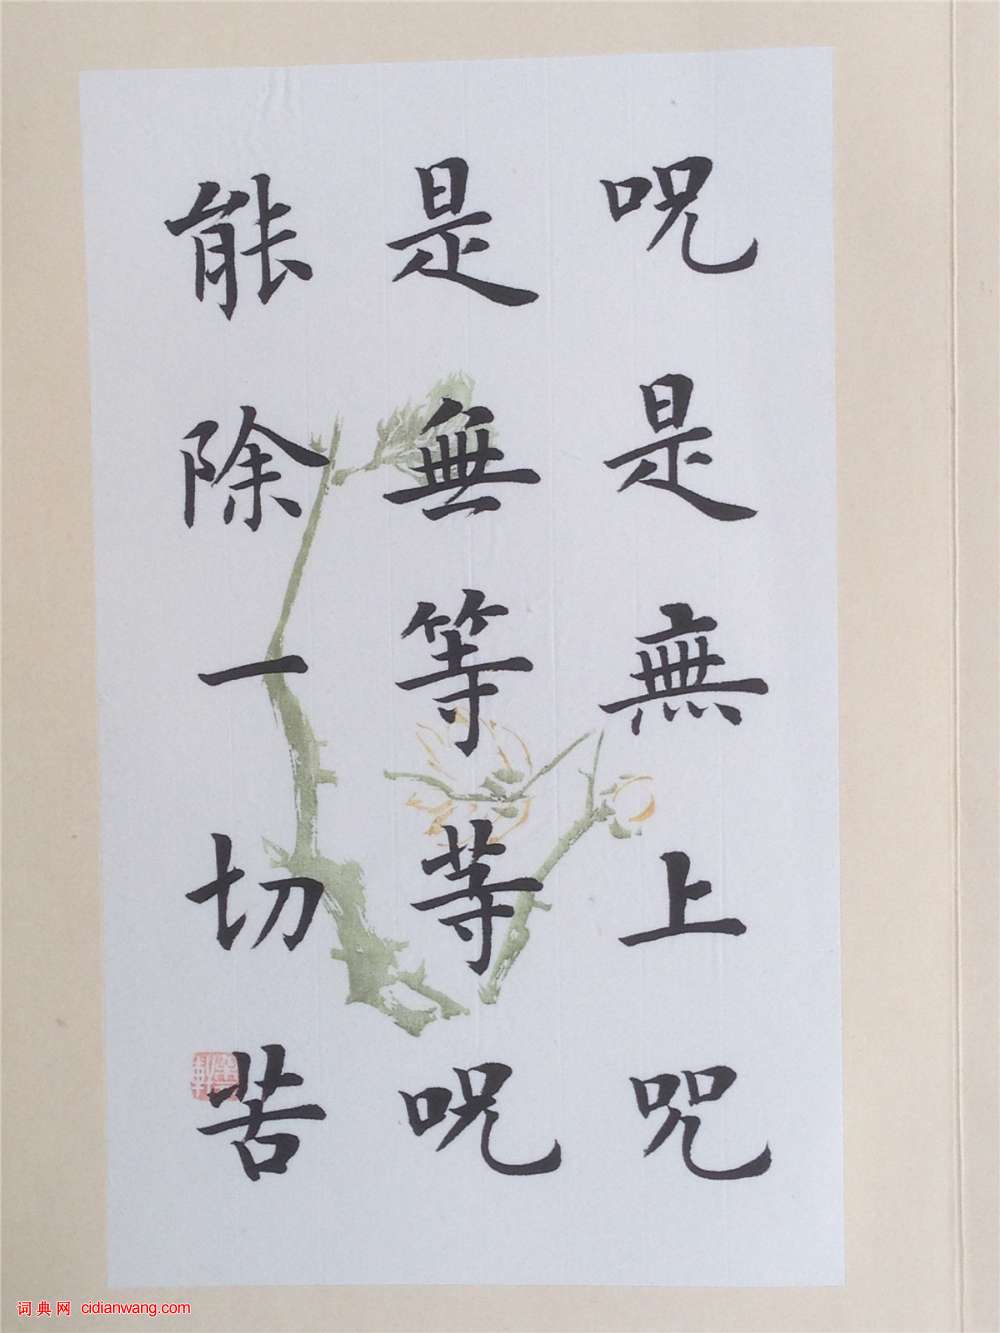 呪是無上咒
是無等等呪
能除一切苦
词典网 cidianwang.com